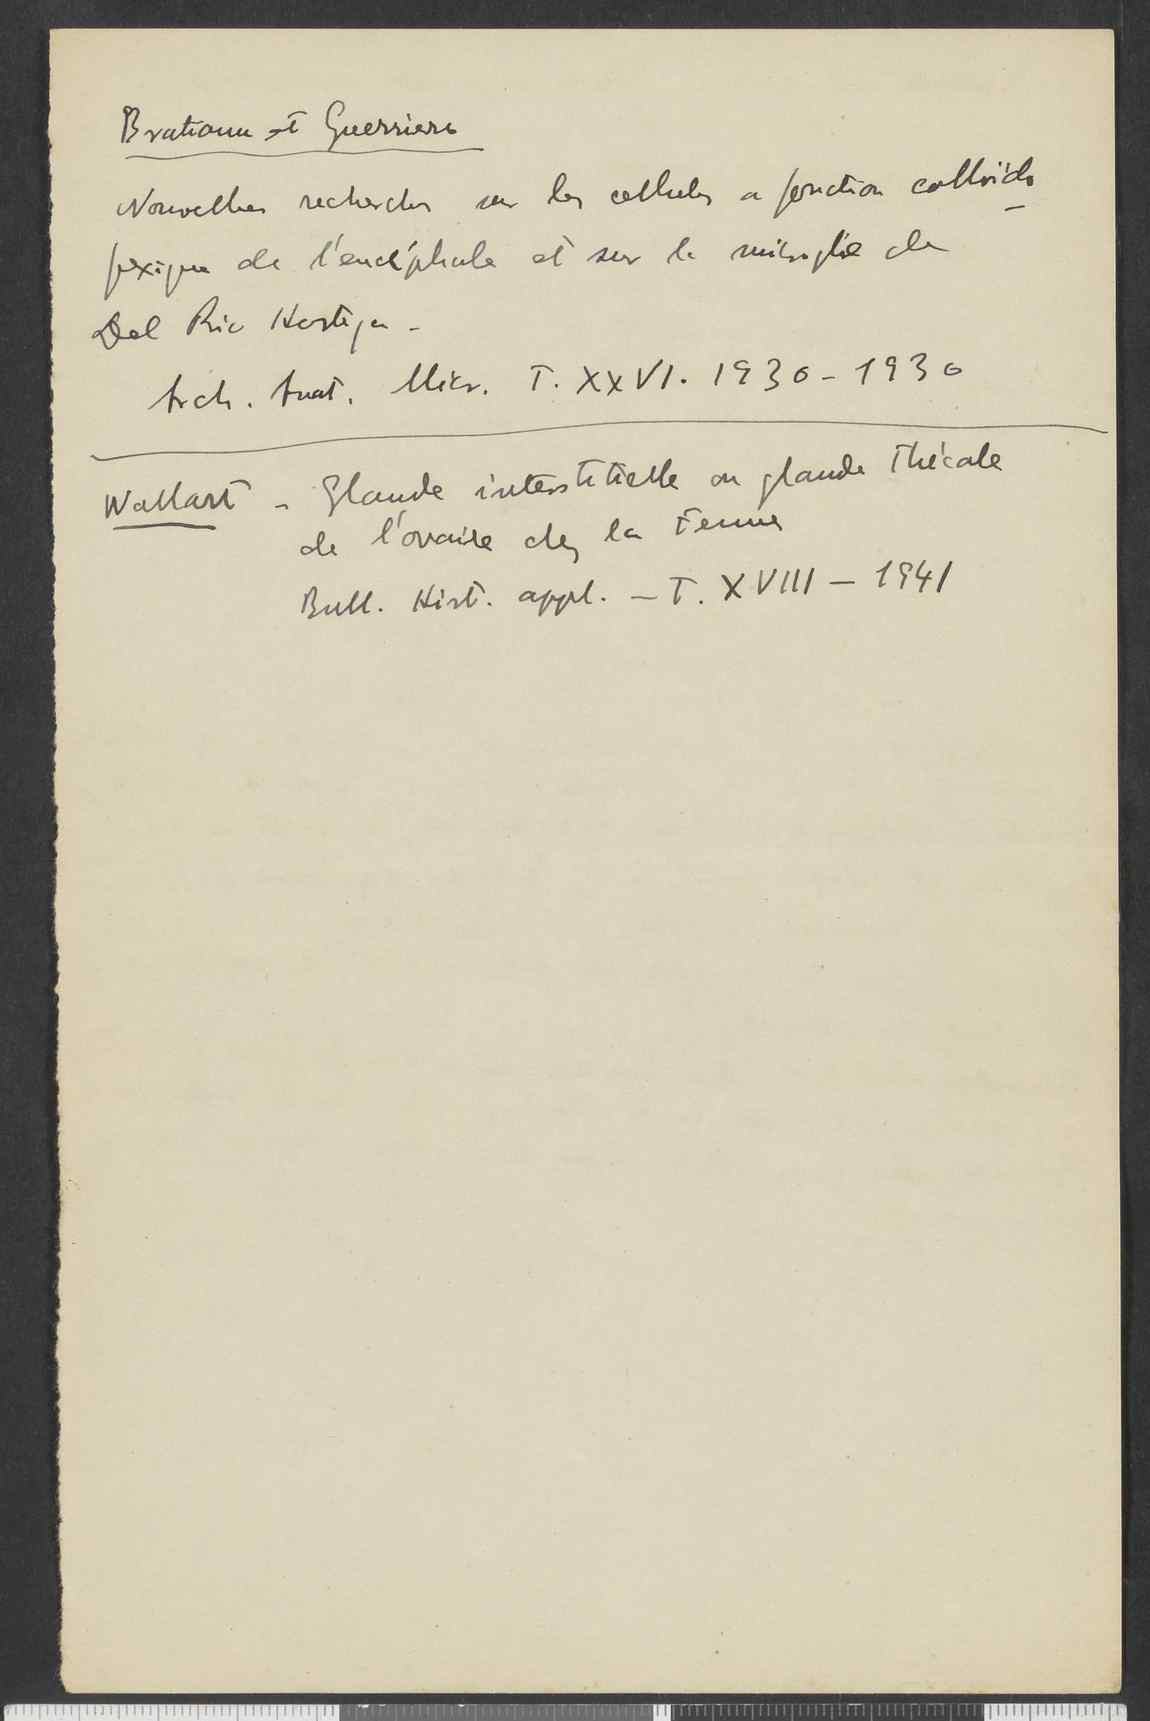 Bratianu et Guerriero
Nouvelles recherches sur les cellules a fonction colloïdo
pexique de l'encéphale et sur la microglie de
Del Rio Hortega -
Arch. Anat. Micr. T. XXVI. 1930 - 1930
Wallart - Glande interstitielle ou glande Thécale
de l'ovaire chez la Femme
Bull. Hist. appl. - T. XVIII - 1941